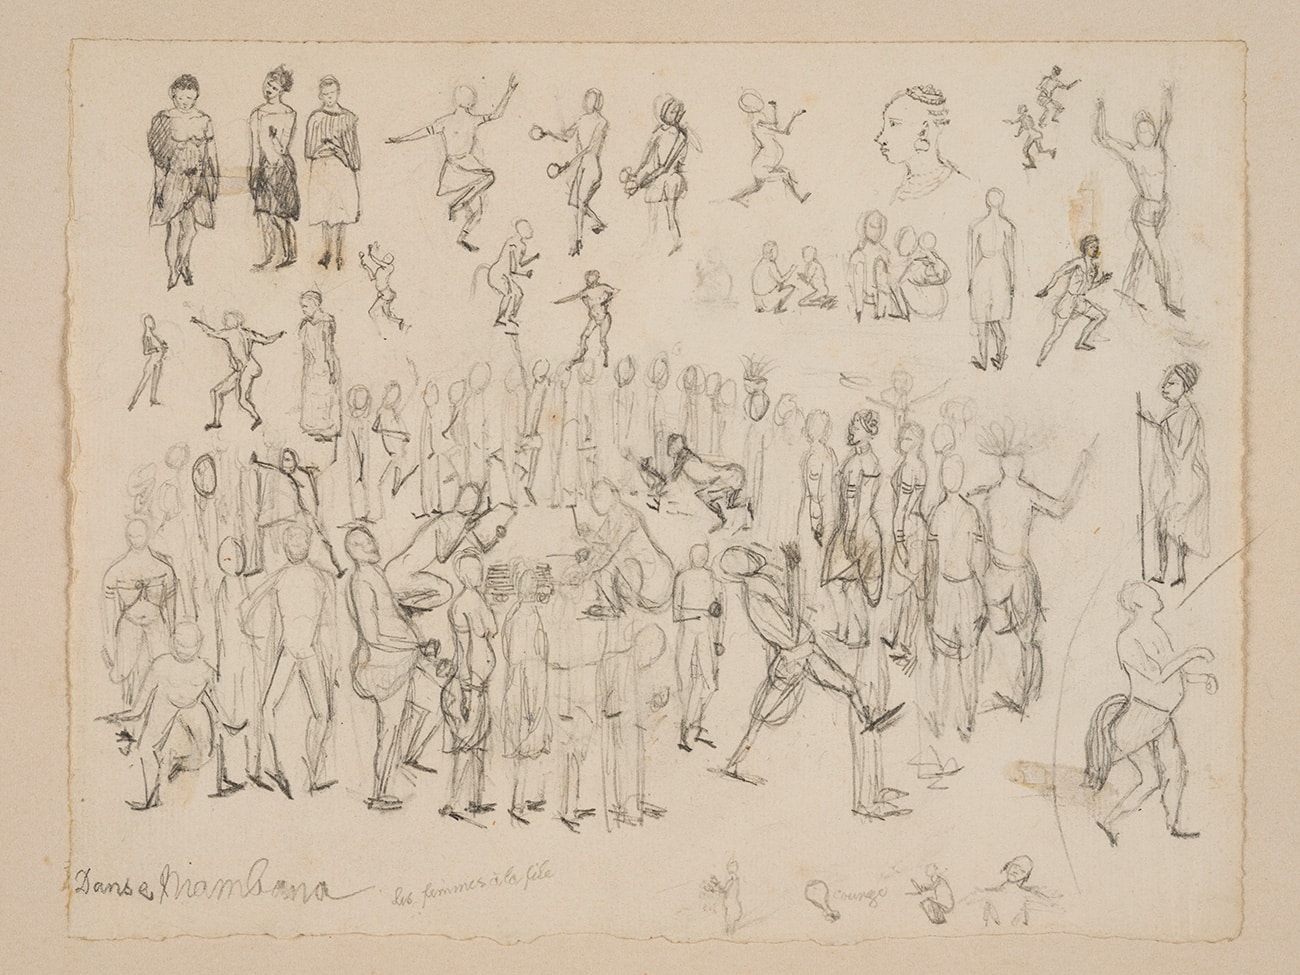 Danse Niambana
les femmes à la file
courge